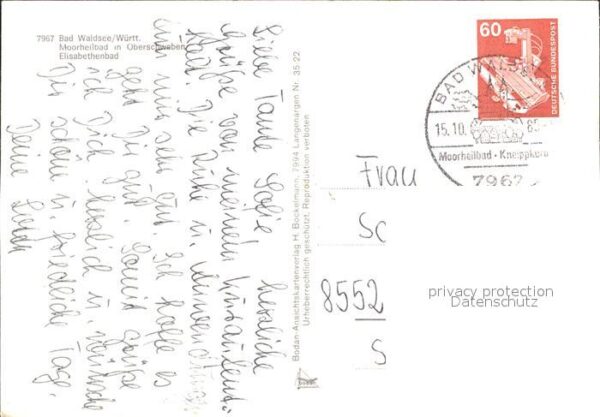 7967 Bad Waldsee/Württ.
Moorheilbad in Oberschwaben
Elisabethenbad
Liebe Tante Sofie, herzliche
Grüße von meinem Kuraufent-
halt. Die Ruhe u. Anwendungen
tun mir sehr gut. Ich hoffe es
geht Dir gut. Somit grüße
ich Dich herzlich u. wünsche
Dir schöne u. friedliche Tage.
Deine
Bodan-Ansichtskartenverlag H. Bockelmann, 7994 Langenargen Nr. 35 22
Urheberrechtlich geschützt. Reproduktion verboten
60
DEUTSCHE BUNDESPOST
BAD WALDSEE
15.10.
Moorheilbad - Kneippkuro
7967
Frau
Sc
8552
S
privacy protection
Datenschutz